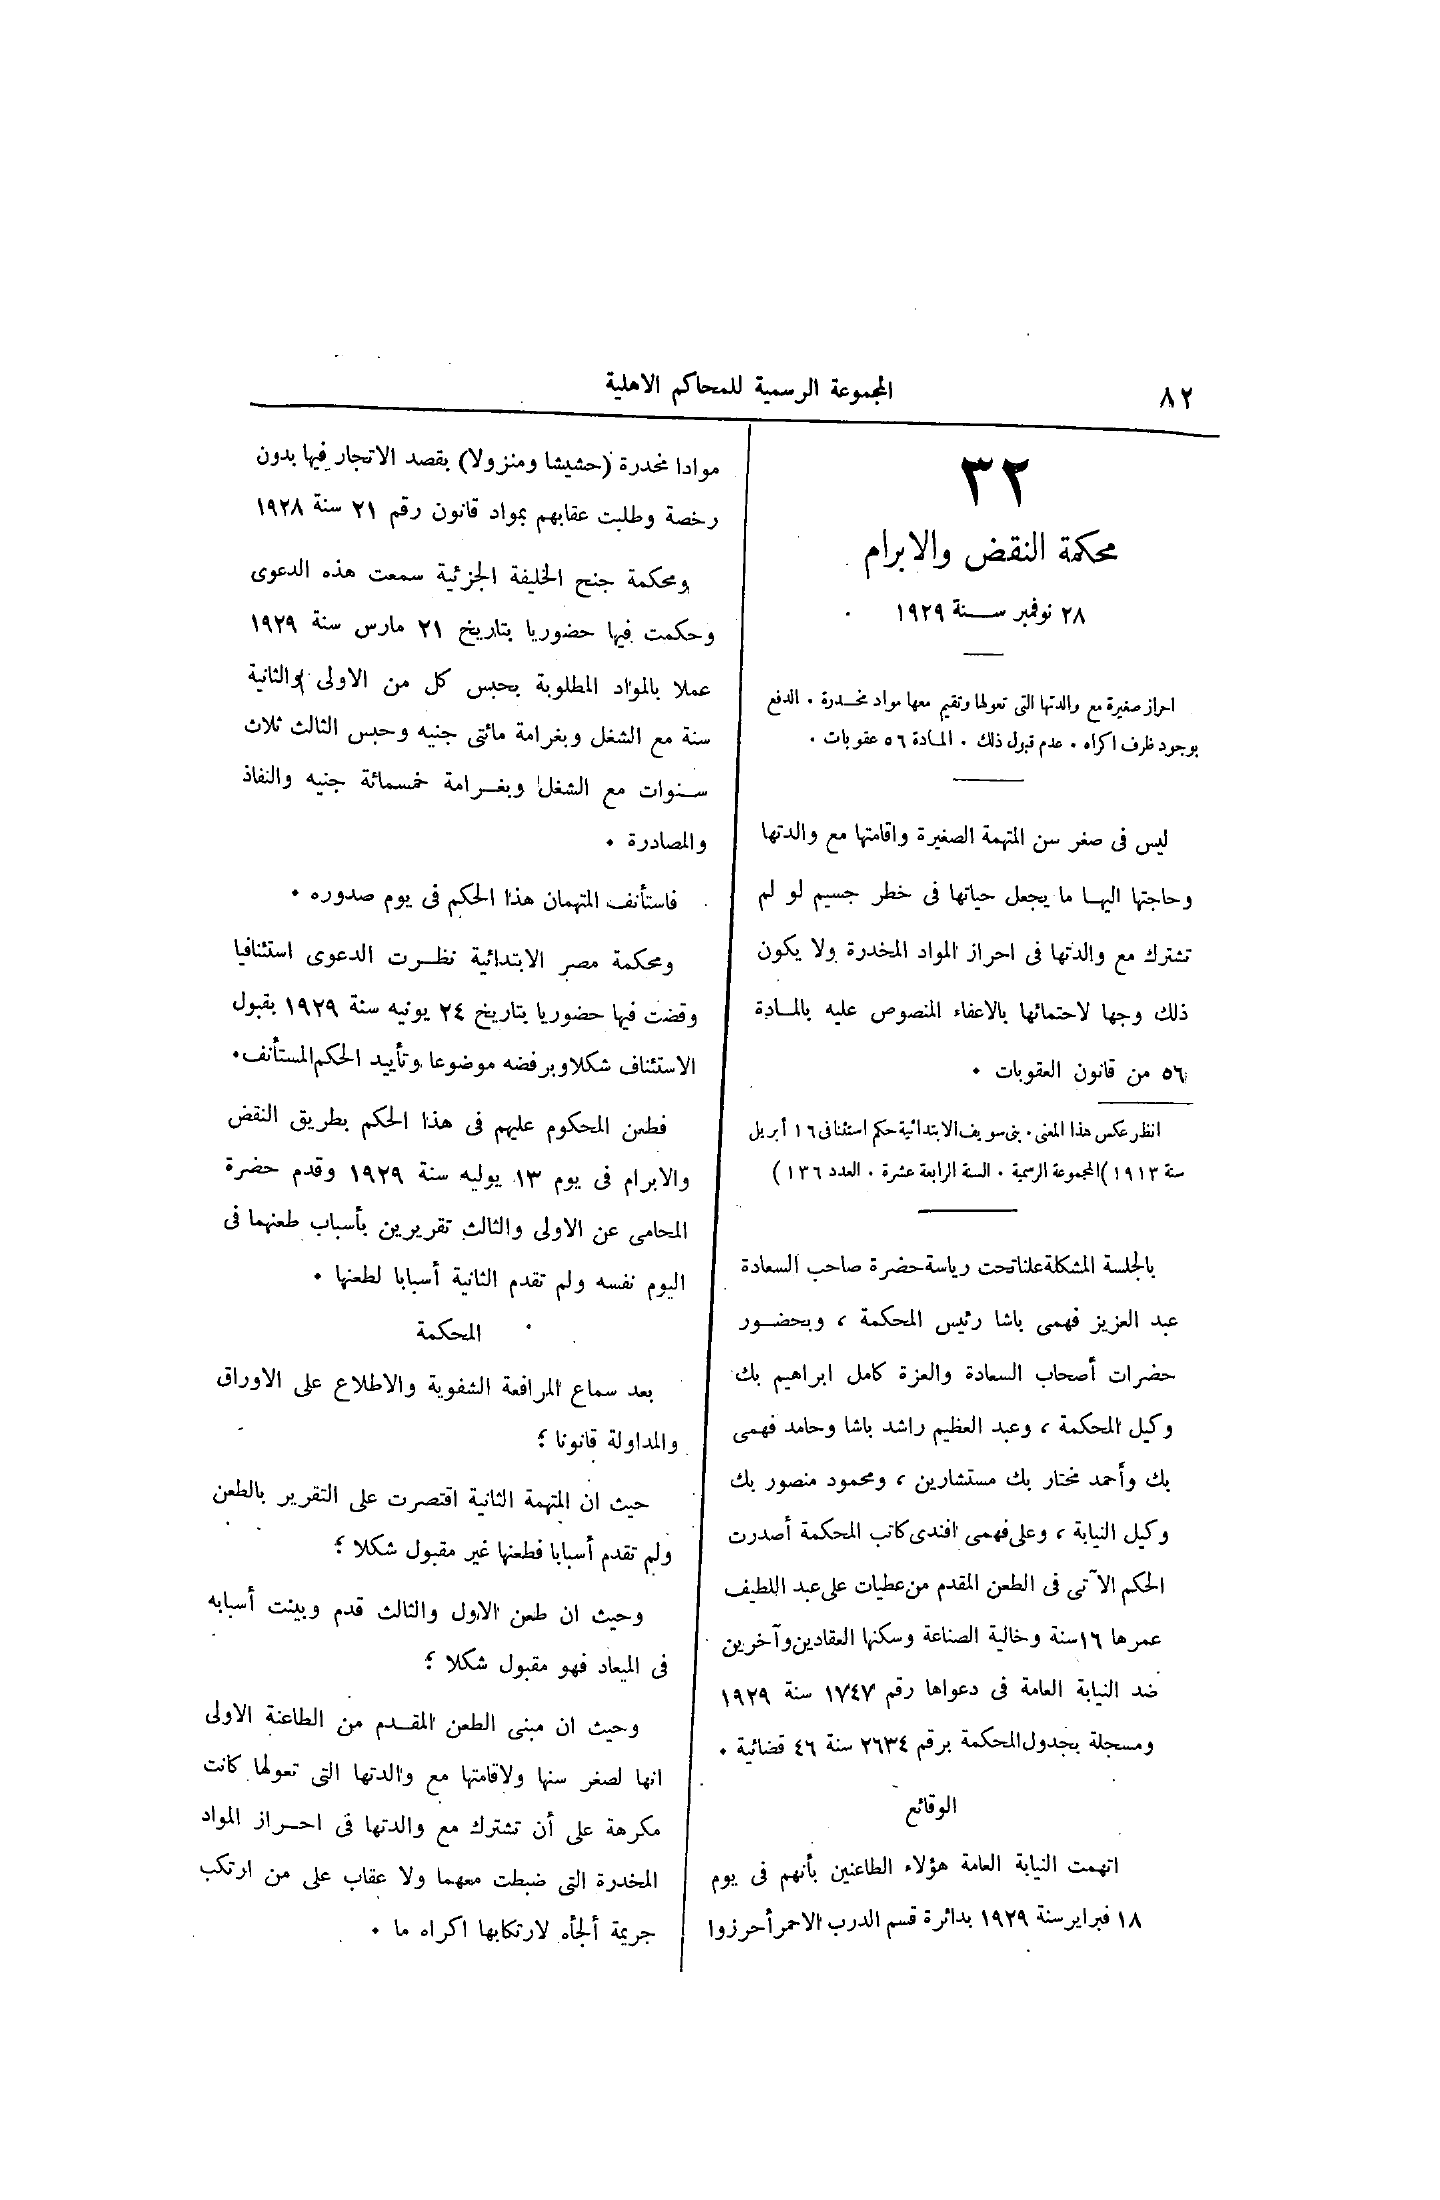 ٨٢
المجموعة الرسمية للمحاكم الاهلية
٣٢
محكمة النقض والابرام
٢٨ نوفمبر ســنة ١٩٢٩
احراز صغيرة مع والدتها التى تعولها وتقيم معها مواد مخــدرة ٠ الدفع
بوجود ظرف اكراه ٠ عدم قبول ذلك ٠ المــادة ٥٦ عقوبات ٠
ليس فى صغر سن المتهمة الصغيرة واقامتها مع والدتها
وحاجتها اليهــا ما يجعل حياتها فى خطر جسيم لو لم
تشترك مع والدتها فى احراز المواد المخدرة ولا يكون
ذلك وجها لاحتمائها بالاعفاء المنصوص عليه بالمــادة
٥٦ من قانون العقوبات ٠
انظر عكس هذا المعنى ٠ بنى سويف الابتدائية حكم استئنافى ١٦ أبريل
سنة ١٩١٣ (المجموعة الرسمية ٠ السنة الرابعة عشرة ٠ العدد ١٣٦)
بالجلسة المشكلة علنا تحت رياسة حضرة صاحب السعادة
عبد العزيز فهمى باشا رئيس المحكمة ، وبحضــور
حضرات أصحاب السعادة والعزة كامل ابراهيم بك
وكيل المحكمة ، وعبد العظيم راشد باشا وحامد فهمى
بك وأحمد مختار بك مستشارين ، ومحمود منصور بك
وكيل النيابة ، وعلى فهمى افندى كاتب المحكمة أصدرت
الحكم الآتى فى الطعن المقدم من عطيات على عبد اللطيف
عمرها ١٦ سنة وخالية الصناعة وسكنها العقادين وآخرين
ضد النيابة العامة فى دعواها رقم ١٧٤٧ سنة ١٩٢٩
ومسجلة بجدول المحكمة برقم ٢٦٣٤ سنة ٤٦ قضائية ٠
الوقائع
اتهمت النيابة العامة هؤلاء الطاعنين بأنهم فى يوم
١٨ فبراير سنة ١٩٢٩ بدائرة قسم الدرب الاحمر أحرزوا
موادا مخدرة (حشيشا ومنزولا) بقصد الاتجار فيها بدون
رخصة وطلبت عقابهم بمواد قانون رقم ٢١ سنة ١٩٢٨
ومحكمة جنح الخليفة الجزئية سمعت هذه الدعوى
وحكمت فيها حضوريا بتاريخ ٢١ مارس سنة ١٩٢٩
عملا بالمواد المطلوبة بحبس كل من الاولى والثانية
سنة مع الشغل وبغرامة مائتى جنيه وحبس الثالث ثلاث
ســنوات مع الشغل وبغــرامة خمسمائة جنيه والنفاذ
والمصادرة ٠
فاستأنف المتهمان هذا الحكم فى يوم صدوره ٠
ومحكمة مصر الابتدائية نظــرت الدعوى استئنافيا
وقضت فيها حضوريا بتاريخ ٢٤ يونيه سنة ١٩٢٩ بقبول
الاستئناف شكلا وبرفضه موضوعا وتأييد الحكم المستأنف ٠
فطعن المحكوم عليهم فى هذا الحكم بطريق النقض
والابرام فى يوم ١٣ يوليه سنة ١٩٢٩ وقدم حضرة
المحامى عن الاولى والثالث تقريرين بأسباب طعنهما فى
اليوم نفسه ولم تقدم الثانية أسبابا لطعنها ٠
المحكمة
بعد سماع المرافعة الشفوية والاطلاع على الاوراق
والمداولة قانونا ؛
حيث ان المتهمة الثانية اقتصرت على التقرير بالطعن
ولم تقدم أسبابا فطعنها غير مقبول شكلا ؛
وحيث ان طعن الاول والثالث قدم وبينت أسبابه
فى الميعاد فهو مقبول شكلا ؛
وحيث ان مبنى الطعن المقــدم من الطاعنة الاولى
انها لصغر سنها ولاقامتها مع والدتها التى تعولها كانت
مكرهة على أن تشترك مع والدتها فى احــراز المواد
المخدرة التى ضبطت معهما ولا عقاب على من ارتكب
جريمة ألجأه لارتكابها اكراه ما ٠